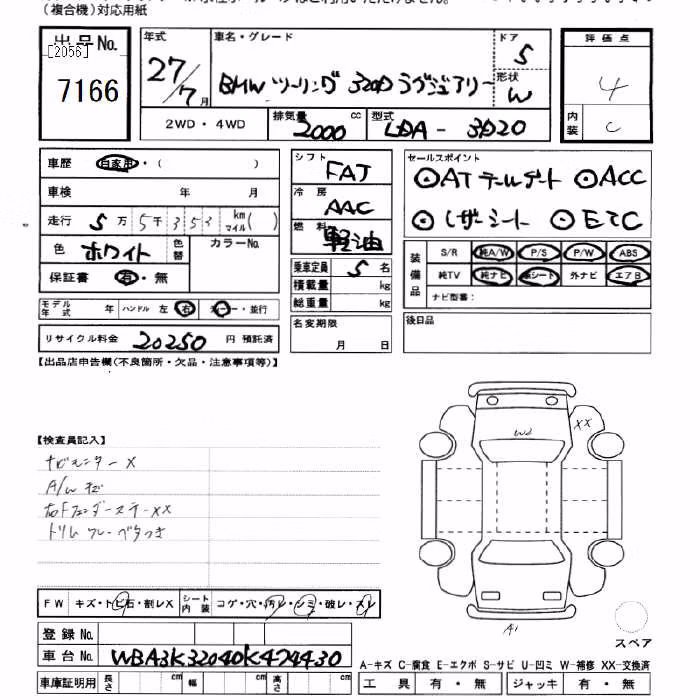 (複合機)対応用紙
出品No.
[2056]
7166
年式
27/7月
車名・グレード
BMW ツーリング 320D ラグジュアリー
ドア
5
形状
W
評価点
4
内装
C
2WD・4WD
排気量
2000 cc
型式
LDA-3D20
車歴 自家用・( )
車検 年 月
走行 5万5千353 km マイル( )
色 ホワイト
色替
カラーNo.
保証書 有・無
シフト
FAT
冷房
AAC
燃料
軽油
乗車定員 5名
積載量 kg
総重量 kg
セールスポイント
⊙AT テールゲート ⊙ACC
⊙レザーシート ⊙ETC
装備品
S/R 純A/W P/S P/W ABS
純TV 純ナビ 革シート 外ナビ エアB
ナビ型番:
モデル年式 年 ハンドル 左 右 ディーラー・並行
リサイクル料金 20250 円 預託済
名変期限
月 日
後日品
【出品店申告欄(不良箇所・欠品・注意事項等)】
【検査員記入】
ナビモニター X
A/W キズ
右Fフェンダーステー XX
トリム ワレ・ベタつき
XX
A1
FW キズ・トビ石・割レX
シート内装 コゲ・穴・汚レ・シミ・破レ・スレ
登録No.
車台No. WBA3K32040K474430
スペア
A-キズ C-腐食 E-エクボ S-サビ U-凹ミ W-補修 XX-交換済
車庫証明用 長さ cm 幅 cm 高さ cm
工具 有・無 ジャッキ 有・無